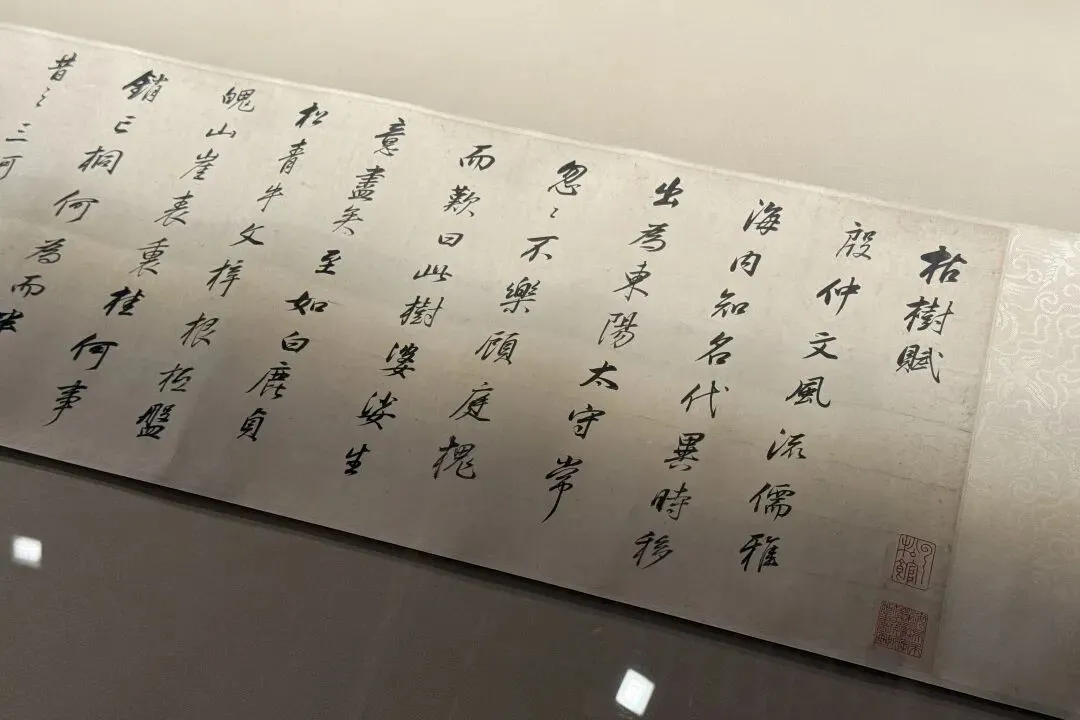 枯樹賦
殷仲文風流儒雅
海内知名代異時移
出為東陽太守常
忽〻不樂顧庭槐
而歎曰此樹婆娑生
意盡矣至如白鹿貞
松青牛文梓根柢盤
魄山崖表裏桂何事
銷亡桐何為而半
昔之三